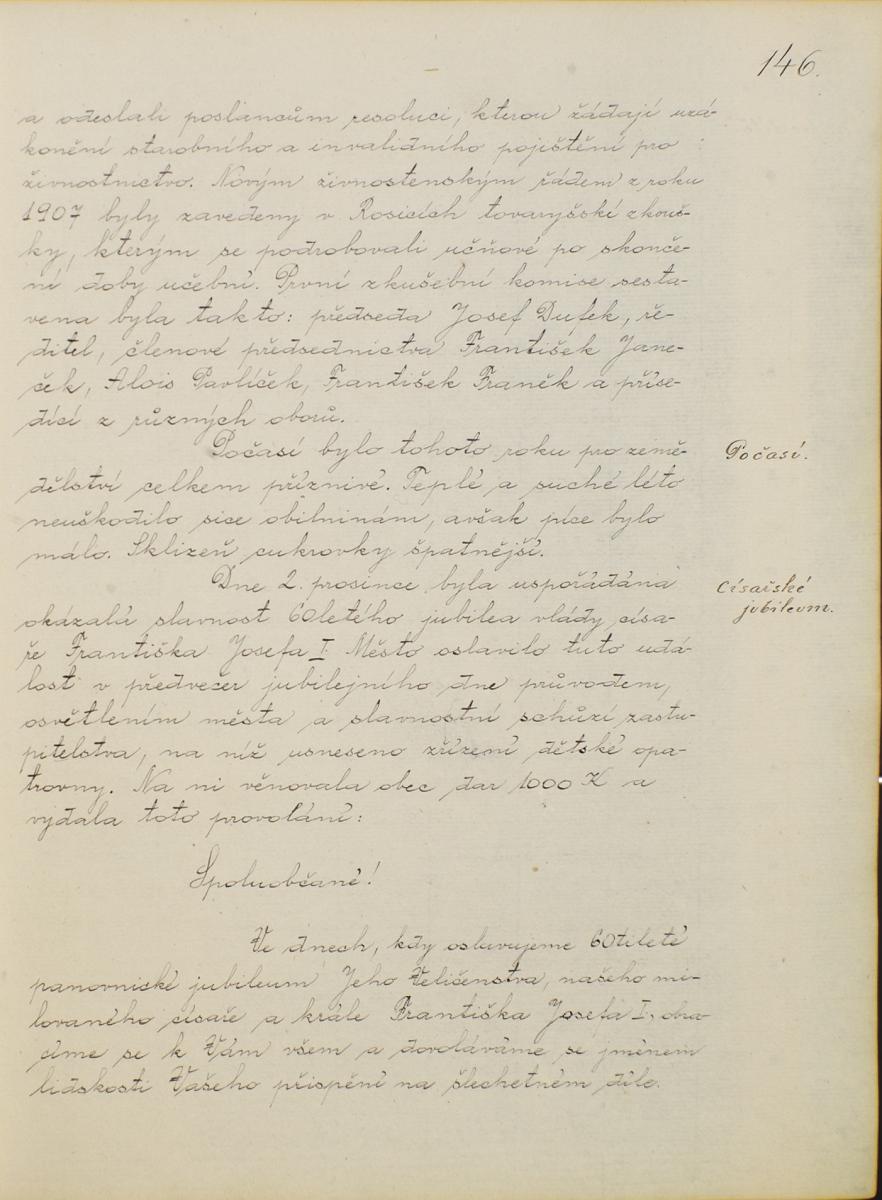 146.
a odeslali poslancům resoluci, kterou žádají uzá-
konění starobního a invalidního pojištění pro
živnostnictvo. Novým živnostenským řádem z roku
1907 byly zavedeny v Rosicích tovaryšské zkouš-
ky, kterým se podrobovali učňové po skonče-
ní doby učební. První zkušební komise sesta-
vena byla takto: předseda Josef Dufek, ře-
ditel, členové předsednictva František Jane-
ček, Alois Pavlíček, František Franěk a příse-
dící z různých oborů.
Počasí bylo tohoto roku pro země-
dělství celkem příznivé. Teplé a suché léto
neuškodilo sice obilninám, avšak píce bylo
málo. Sklizeň cukrovky špatnější.
Počasí.
Dne 2. prosince byla uspořádána
okázalá slavnost 60letého jubilea vlády císa-
ře Františka Josefa I. Město oslavilo tuto udá-
lost v předvečer jubilejního dne průvodem,
osvětlením města a slavnostní schůzí zastu-
pitelstva, na níž usneseno zřízení dětské opa-
trovny. Na ni věnovala obec dar 1000 K a
vydala toto provolání:
Císařské
jubileum.
Spoluobčané!
Ve dnech, kdy oslavujeme 60tileté
panovnické jubileum Jeho Veličenstva, našeho mi-
lovaného císaře a krále Františka Josefa I., obra-
címe se k Vám všem a dovoláváme se jménem
lidskosti Vašeho přispění na šlechetném díle.